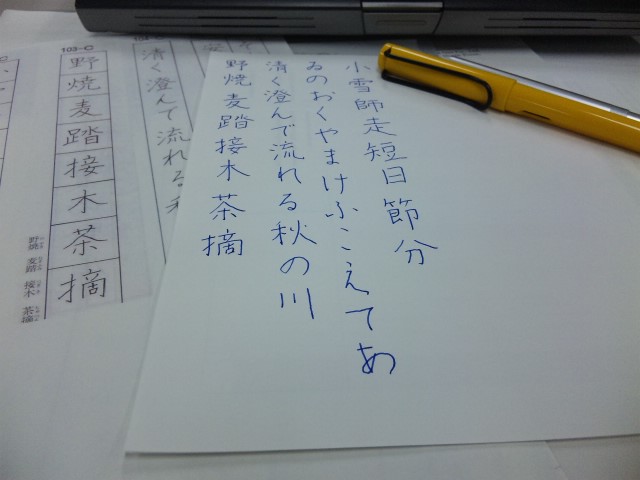 小雪師走短日節分
ゐのおくやまけふこえてあ
清く澄んで流れる秋の川
野焼麦踏接木茶摘
清く澄んで流れる
103-C
野焼麦踏接木茶摘
野焼 麦踏 接木 茶摘